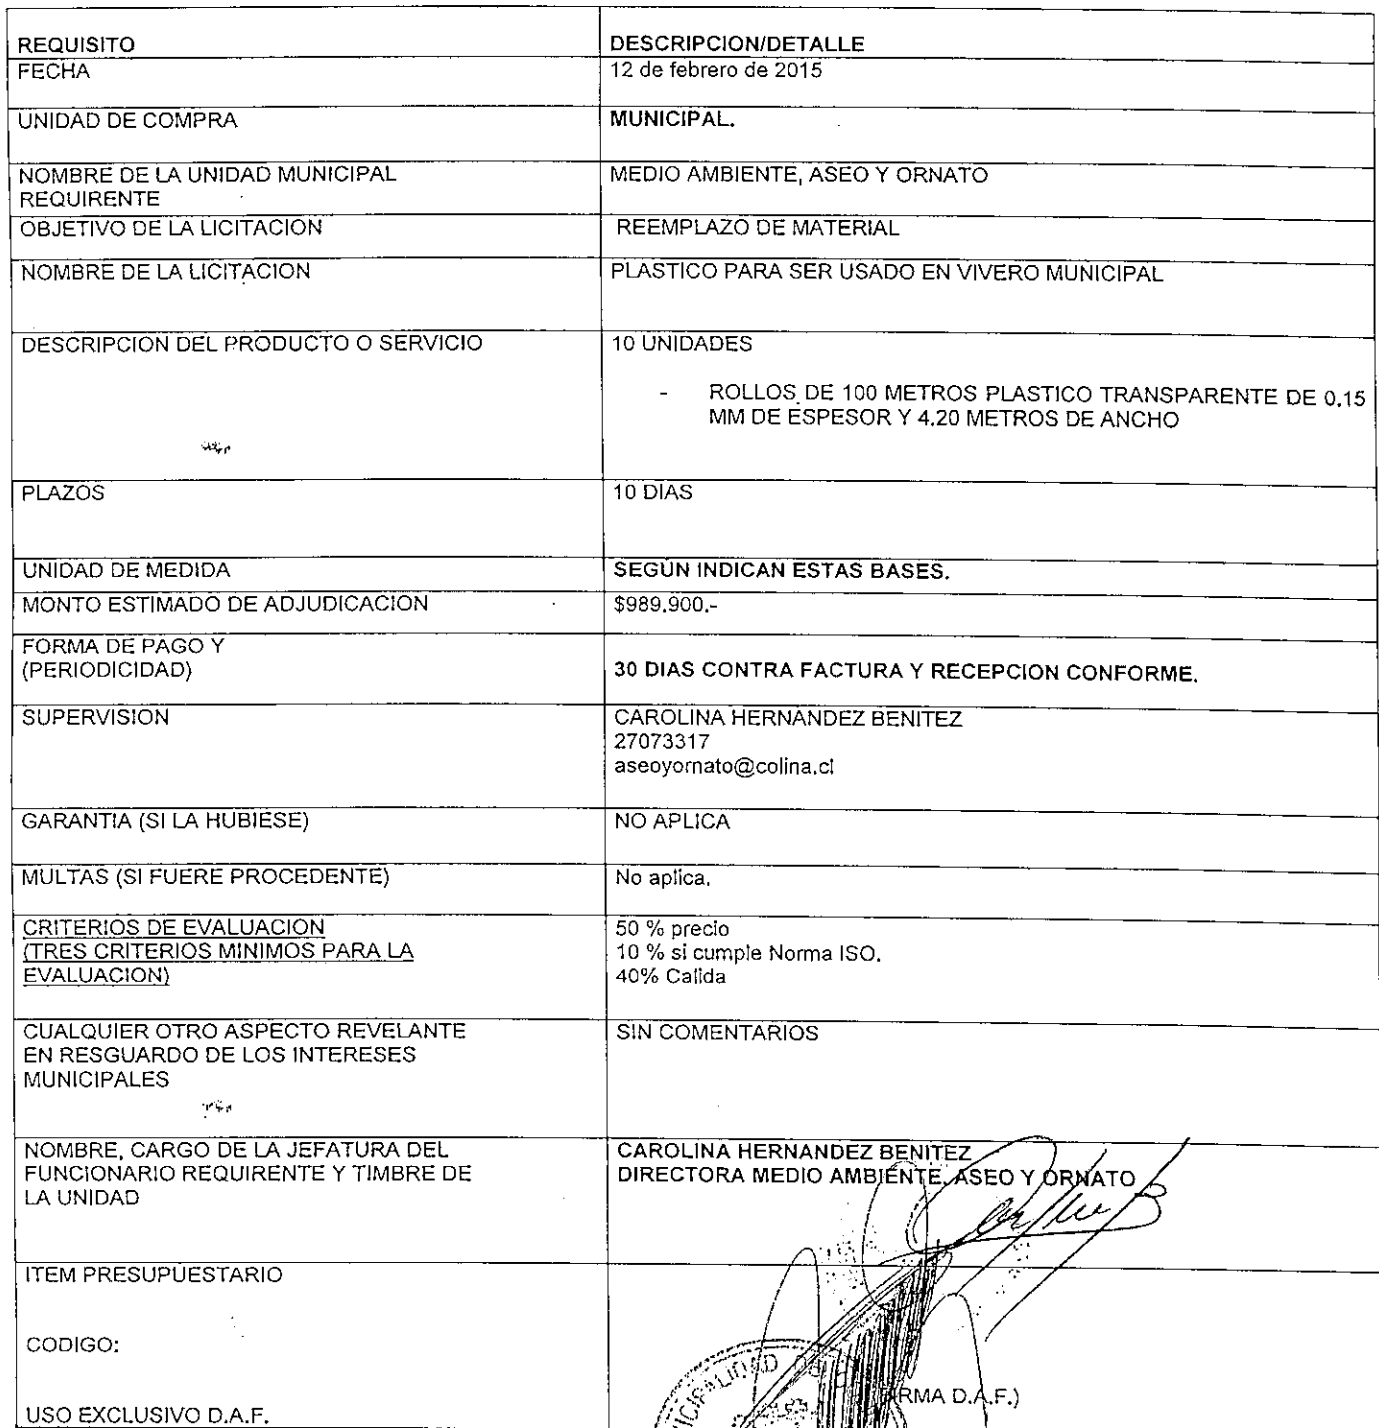 REQUISITO DESCRIPCION/DETALLE
FECHA 12 de febrero de 2015
UNIDAD DE COMPRA MUNICIPAL.
NOMBRE DE LA UNIDAD MUNICIPAL MEDIO AMBIENTE, ASEO Y ORNATO
REQUIRENTE
OBJETIVO DE LA LICITACION REEMPLAZO DE MATERIAL
NOMBRE DE LA LICITACION PLASTICO PARA SER USADO EN VIVERO MUNICIPAL
DESCRIPCION DEL PRODUCTO O SERVICIO 10 UNIDADES
- ROLLOS DE 100 METROS PLASTICO TRANSPARENTE DE 0.15
MM DE ESPESOR Y 4.20 METROS DE ANCHO
PLAZOS 10 DIAS
UNIDAD DE MEDIDA SEGÚN INDICAN ESTAS BASES.
MONTO ESTIMADO DE ADJUDICACION $989.900.-
FORMA DE PAGO Y
(PERIODICIDAD) 30 DIAS CONTRA FACTURA Y RECEPCION CONFORME.
SUPERVISION CAROLINA HERNANDEZ BENITEZ
27073317
aseoyornato@colina.cl
GARANTIA (SI LA HUBIESE) NO APLICA
MULTAS (SI FUERE PROCEDENTE) No aplica.
CRITERIOS DE EVALUACION 50 % precio
(TRES CRITERIOS MINIMOS PARA LA 10 % si cumple Norma ISO.
EVALUACION) 40% Calida
CUALQUIER OTRO ASPECTO REVELANTE SIN COMENTARIOS
EN RESGUARDO DE LOS INTERESES
MUNICIPALES
NOMBRE, CARGO DE LA JEFATURA DEL CAROLINA HERNANDEZ BENITEZ
FUNCIONARIO REQUIRENTE Y TIMBRE DE DIRECTORA MEDIO AMBIENTE, ASEO Y ORNATO
LA UNIDAD
ITEM PRESUPUESTARIO
CODIGO:
D.A.F.)
USO EXCLUSIVO D.A.F.